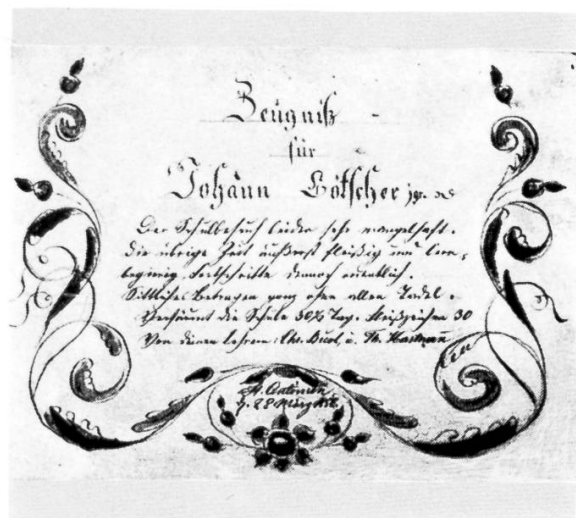 Zeügniß
für
Johann Lötscher jgr.
Der Schulbesuch leider sehr mangelhaft.
Die übrige Zeit äußerst fleißig und lern-
begierig. Fortschritte demnach ordentlich.
Sittliches Betragen ganz ohne allen Tadel.
Versäumt die Schule 30½ Tag. Fleißzeichen 30
Von deinen Lehrern: Chr. Buol, u. Th. Hartmann
St. Antönien
d. 28 März